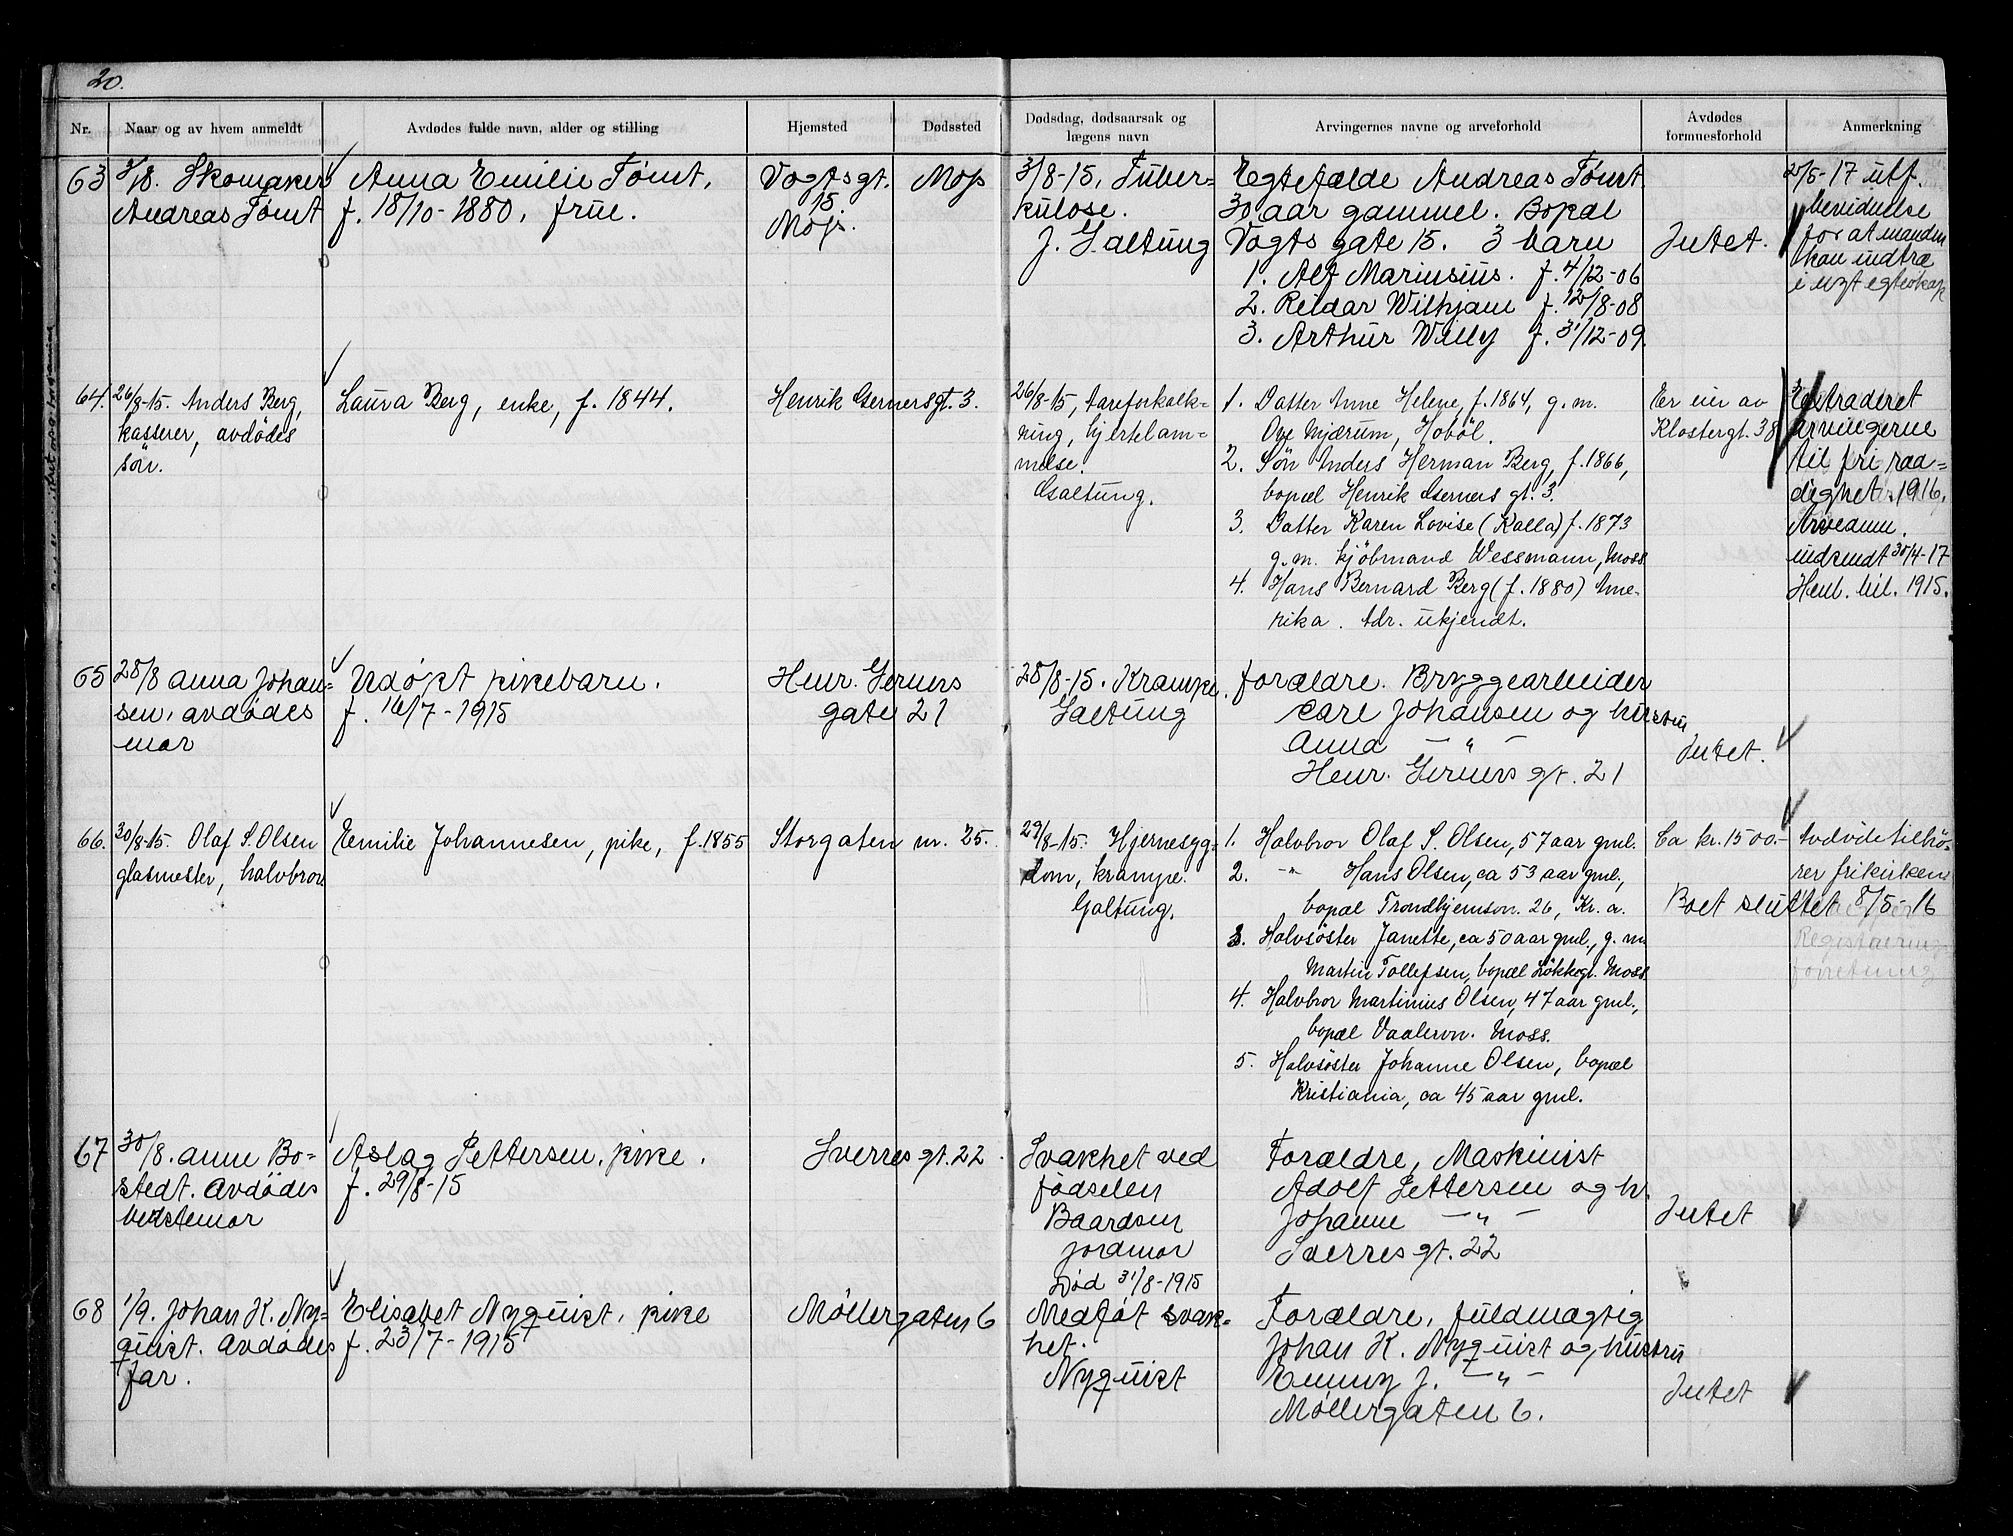 20.
Nr.
Naar og av hvem anmeldt
Avdødes fulde navn, alder og stilling
Hjemsted
Dødssted
Dødsdag, dødsaarsak og
lægens navn
Arvingernes navne og arveforhold
Avdødes
formuesforhold
Anmerkning
63
3/8. Skomaker
Andreas Tømt
Anna Emilie Tømt,
f. 18/10-1880, frue.
Vogtsgt.
15
Moss.
Moss
3/8-15, Tuber-
kulose.
J. Galtung
Egtefælde Andreas Tømt
30 aar gammel. Bopæl
Vogts gate 15. 3 barn
1. Alf Marinsius. f. 4/12-06
2. Reidar Wilhjam f. 12/8-08
3. Arthur Willy f. 31/12-09.
Intet.
2/5-17 utf.
bevidnelse
for at manden
kan indtræ
i nyt egteskap
64.
26/8-15. Anders Berg,
kasserer, avdødes
sön.
Laura Berg, enke, f. 1844.
Henrik Gernersgt. 3.
26/8-15, Aareforkalk-
ning, hjertelam-
melse.
Galtung.
1. Datter Anne Helene, f. 1864, g. m.
Ove Mjærum, Hobøl.
2. Sön Anders Herman Berg, f. 1866,
bopæl Henrik Gerners gt. 3.
3. Datter Karen Lovise (Kalla) f. 1873
g. m. kjöbmand Wessmann, Moss
4. Hans Bernard Berg (f. 1880) Ame-
rika. Adr. ukjendt.
Er eier av
Klostergt. 38
Extraderet
arvingerne
til fri raa-
dighet 1916.
Arveanm.
indsendt 30/4-17
Henl. til. 1915.
65
28/8 Anna Johan-
sen, avdødes
mor
Udøpt pikebarn.
f. 16/7-1915
Henr. Gerners
gate 21
28/8-15. Krampe.
Galtung
forældre. Bryggearbeider
Carl Johansen og hustru
Anna — " —
Henr. Gerners gt. 21
Intet.
66.
30/8-15. Olaf S. Olsen
glasmester, halvbror
Emilie Johannesen, pike, f. 1855
Storgaten nr. 25.
29/8-15. Hjernesyg-
dom, krampe.
Galtung.
1. Halvbror Olaf S. Olsen, 57 aar gml.
2. -"- Hans Olsen, ca 53 aar gml.,
bopæl Trondhjemsvn. 26, Kr.a.
3. Halvsöster Janette, ca 50 aar gml., g. m.
Martin Tollefsen, bopæl Løkkegt. Moss.
4. Halvbror Martinius Olsen, 47 aar gml.,
bopæl Vaalervn. Moss.
5. Halvsöster Johanne Olsen, bopæl
Kristiania, ca 45 aar gml.
Ca kr. 1500.-
Boet sluttet 8/5-16
Avdöde tilhö-
rer frikirken
Registrerings-
forretning
67
30/8. Anne Bo-
stedt. Avdødes
bestemor
Aslag Pettersen, pike.
f. 29/8-15
Sverres gt. 22.
Svakhet ved
fødselen
Baardsen
jordmor
Død 31/8-1915
Forældre, Maskinist
Adolf Pettersen og h.
Johanne — " —
Sverres gt. 22
Intet
68
1/9. Johan K. Ny-
quist. Avdødes
far.
Elisabet Nyquist, pike
f. 23/7-1915
Møllergaten 6
Medføt svak-
het.
Nyquist
Forældre, fuldmægtig
Johan K. Nyquist og hustru
Emmy J. — " —
Møllergaten 6.
Intet